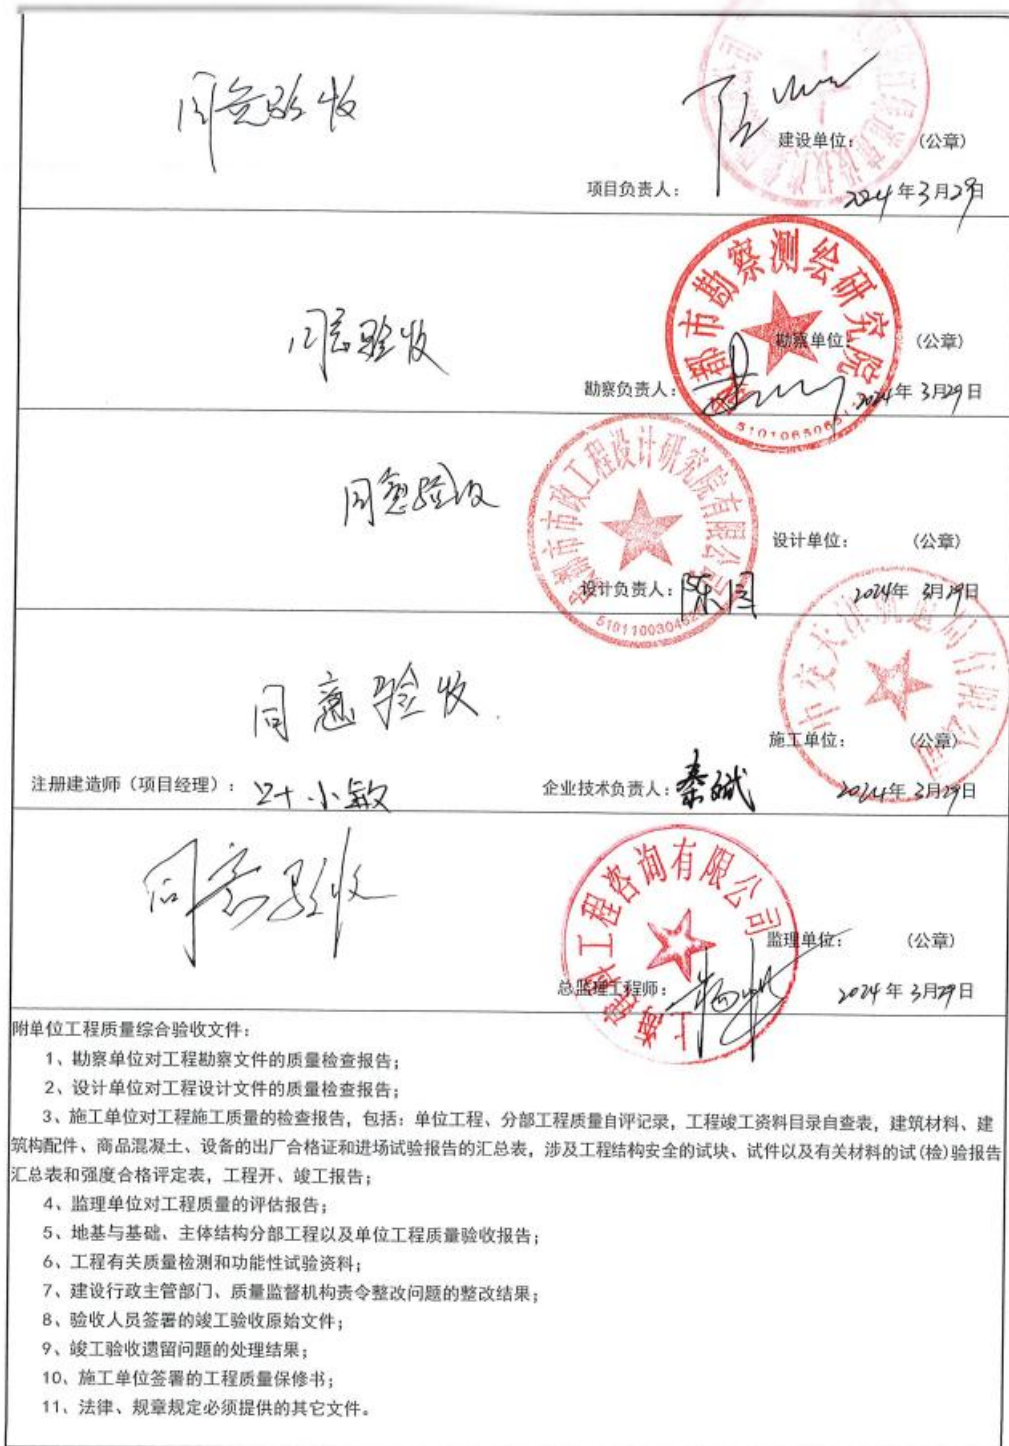 同意验收
建设单位: (公章)
项目负责人:
2024年3月29日
成都市勘察测绘研究院
同意验收
勘察单位: (公章)
勘察负责人: 2024年 3月29日
成都市市政工程设计研究院有限公司
同意验收
设计单位: (公章)
设计负责人: 陈国 2024年 3月29日
中交天津航道局有限公司
同意验收
施工单位: (公章)
注册建造师(项目经理): 叶小敏 企业技术负责人: 秦斌 2024年3月29日
同意验收
工程咨询有限公司
上海
监理单位: (公章)
总监理工程师: 2024年3月29日
附单位工程质量综合验收文件:
1、勘察单位对工程勘察文件的质量检查报告;
2、设计单位对工程设计文件的质量检查报告;
3、施工单位对工程施工质量的检查报告, 包括: 单位工程、分部工程质量自评记录, 工程竣工资料目录自查表, 建筑材料、建
筑构配件、商品混凝土、设备的出厂合格证和进场试验报告的汇总表, 涉及工程结构安全的试块、试件以及有关材料的试(检)验报告
汇总表和强度合格评定表, 工程开、竣工报告;
4、监理单位对工程质量的评估报告;
5、地基与基础、主体结构分部工程以及单位工程质量验收报告;
6、工程有关质量检测和功能性试验资料;
7、建设行政主管部门、质量监督机构责令整改问题的整改结果;
8、验收人员签署的竣工验收原始文件;
9、竣工验收遗留问题的处理结果;
10、施工单位签署的工程质量保修书;
11、法律、规章规定必须提供的其它文件。